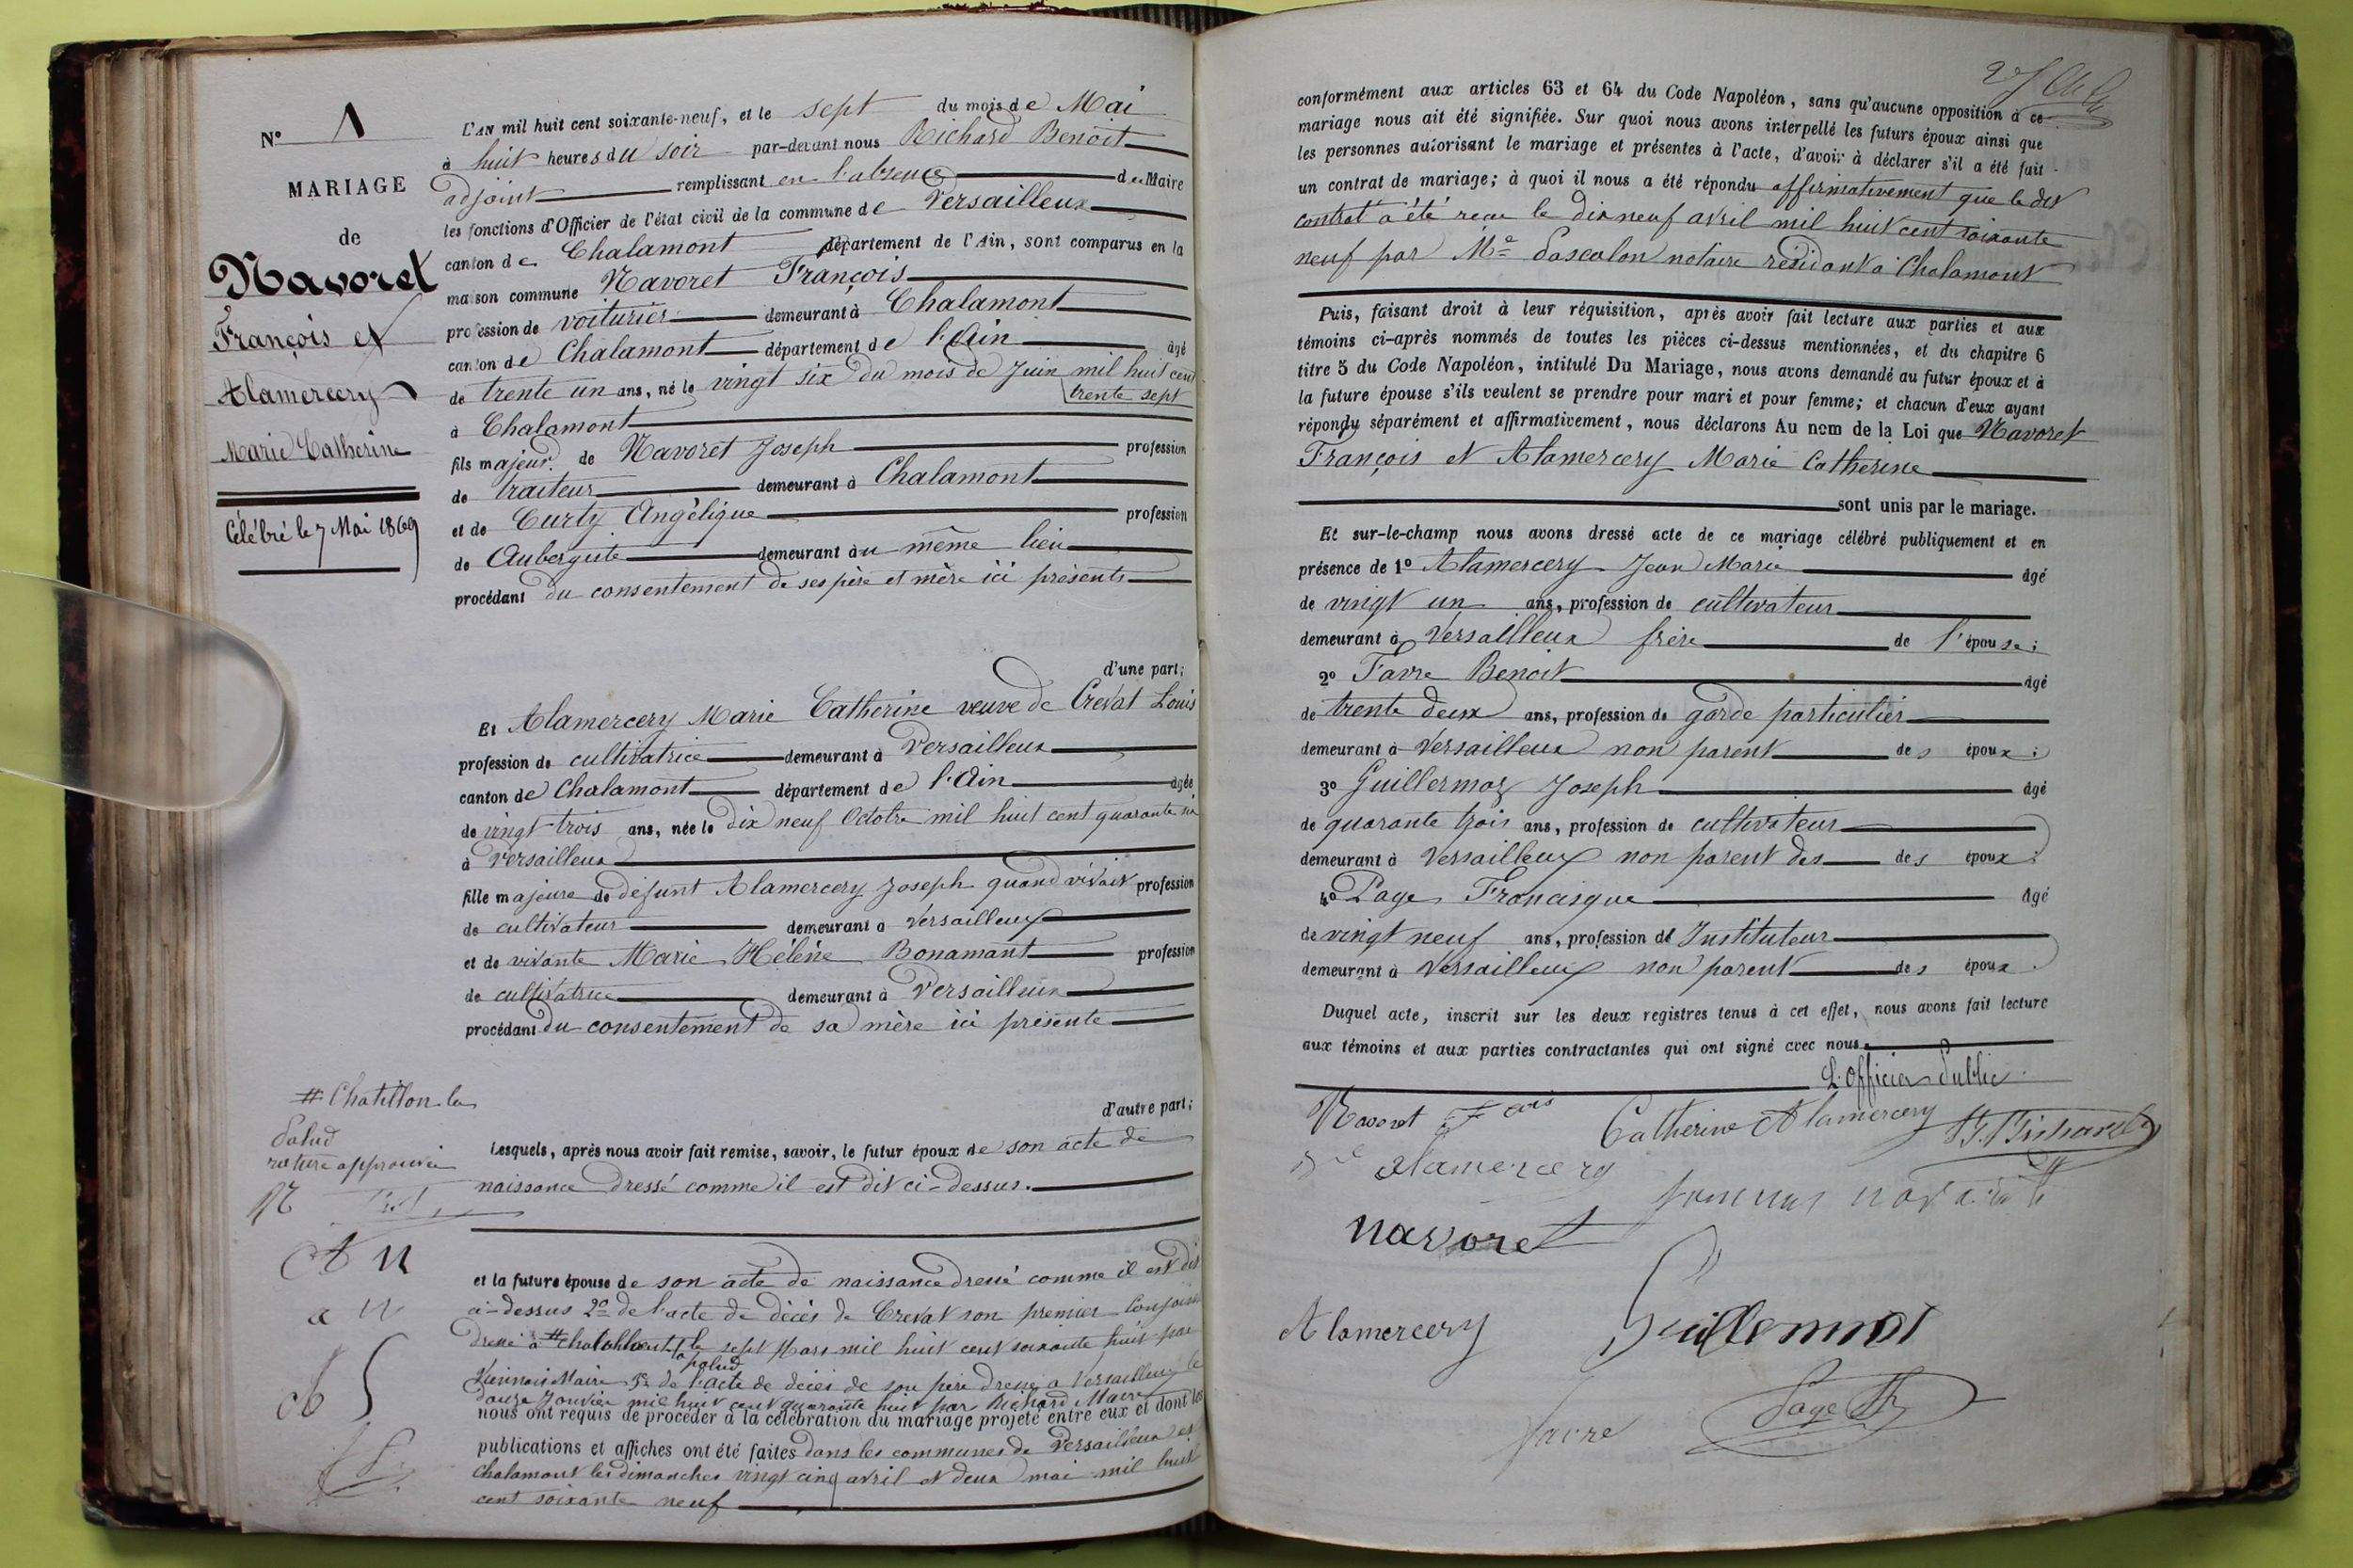 N° 1
MARIAGE
de
Navoret
François et
Alamercery
Marie Catherine
Célébré le 7 Mai 1869
L'AN mil huit cent soixante-neuf, et le sept du mois de Mai
à huit heures du soir par-devant nous Richard Benoit
adjoint remplissant en l'absence du Maire
les fonctions d'Officier de l'état civil de la commune de Versailleux
canton de Chalamont département de l'Ain, sont comparus en la
maison commune Navoret François
profession de voiturier demeurant à Chalamont
canton de Chalamont département de l'Ain âgé
de trente un ans, né le vingt six du mois de Juin mil huit cent
trente sept
à Chalamont
fils majeur de Navoret Joseph profession
de traiteur demeurant à Chalamont
et de Curty Angélique profession
de Aubergiste demeurant au même lieu
procédant du consentement de ses père et mère ici présents
d'une part;
Et Alamercery Marie Catherine veuve de Crevat Louis
profession de cultivatrice demeurant à Versailleux
canton de Chalamont département de l'Ain âgée
de vingt trois ans, née le dix neuf Octobre mil huit cent quarante six
à Versailleux
fille majeure de défunt Alamercery Joseph quand vivait profession
de cultivateur demeurant à Versailleux
et de vivante Marie Hélène Bonamant profession
de cultivatrice demeurant à Versailleux
procédant du consentement de sa mère ici présente
d'autre part;
# Chatillon la
Palud
rature approuvée
Lesquels, après nous avoir fait remise, savoir, le futur époux de son acte de
naissance dressé comme il est dit ci-dessus.
A N
a N
et la future épouse de son acte de naissance dressé comme il est dit
ci-dessus 2° de l'acte de décès de Crevat son premier Conjoint
dressé à # la palud le sept Mars mil huit cent soixante huit par
Maire 3° de l'acte de décès de son père dressé à Versailleux le
douze Janvier mil huit cent quarante huit par Richard Maire
nous ont requis de procéder à la célébration du mariage projeté entre eux et dont les
publications et affiches ont été faites dans les communes de Versailleux et
Chalamont les dimanches vingt cinq avril et deux mai mil huit
cent soixante neuf
conformément aux articles 63 et 64 du Code Napoléon, sans qu'aucune opposition à ce
mariage nous ait été signifiée. Sur quoi nous avons interpellé les futurs époux ainsi que
les personnes autorisant le mariage et présentes à l'acte, d'avoir à déclarer s'il a été fait
un contrat de mariage; à quoi il nous a été répondu affirmativement que le dit
contrat a été reçu le dix neuf avril mil huit cent soixante
neuf par Me Pascalon notaire résidant à Chalamont
Puis, faisant droit à leur réquisition, après avoir fait lecture aux parties et aux
témoins ci-après nommés de toutes les pièces ci-dessus mentionnées, et du chapitre 6
titre 5 du Code Napoléon, intitulé Du Mariage, nous avons demandé au futur époux et à
la future épouse s'ils veulent se prendre pour mari et pour femme; et chacun d'eux ayant
répondu séparément et affirmativement, nous déclarons Au nom de la Loi que Navoret
François et Alamercery Marie Catherine
sont unis par le mariage.
Et sur-le-champ nous avons dressé acte de ce mariage célébré publiquement et en
présence de 1° Alamercery Jean Marie âgé
de vingt un ans, profession de cultivateur
demeurant à Versailleux frère de l'épouse;
2° Favre Benoit âgé
de trente deux ans, profession de garde particulier
demeurant à Versailleux non parent des époux;
3° Guillermoz Joseph âgé
de quarante trois ans, profession de cultivateur
demeurant à Versailleux non parent des des époux;
4° Page Francisque âgé
de vingt neuf ans, profession de Instituteur
demeurant à Versailleux non parent des époux.
Duquel acte, inscrit sur les deux registres tenus à cet effet, nous avons fait lecture
aux témoins et aux parties contractantes qui ont signé avec nous.
L'officier Public
Navoret Fcois Catherine Alamercery Bt Richard
Alamercery
navoret
Alamercery Guillermoz
favre Page